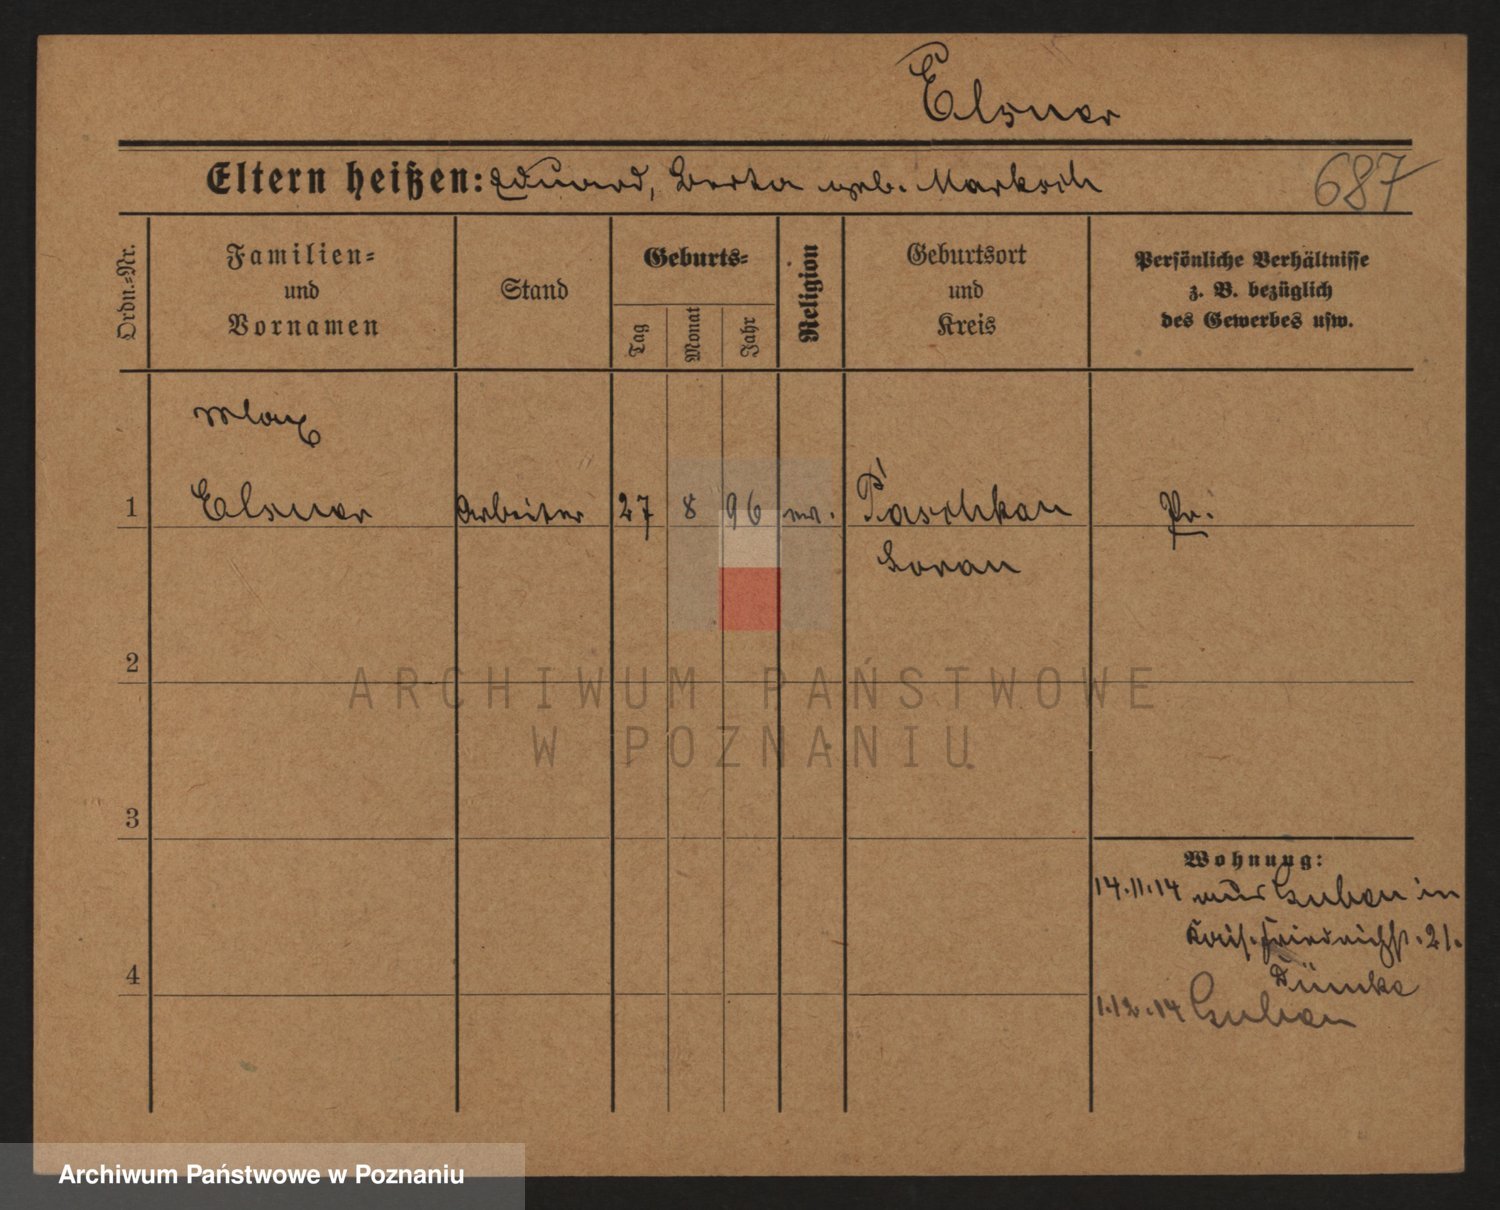 Elsner
Eltern heißen: Eduard, Berta geb. Markoch
687
Ordn.-Nr.
Familien-
und
Vornamen
Stand
Geburts-
Tag
Monat
Jahr
Religion
Geburtsort
und
Kreis
Persönliche Verhältnisse
z. B. bezüglich
des Gewerbes usw.
Max
1 Elsner Arbeiter 27 8 96 ev. Paschkau Pr.
Sorau
2
ARCHIWUM PAŃSTWOWE
W POZNANIU
3
Wohnung:
14.11.14 aus Guben in
Kais. Friedrichst. 21.
4
Dümke
1.12.14 Guben
Archiwum Państwowe w Poznaniu